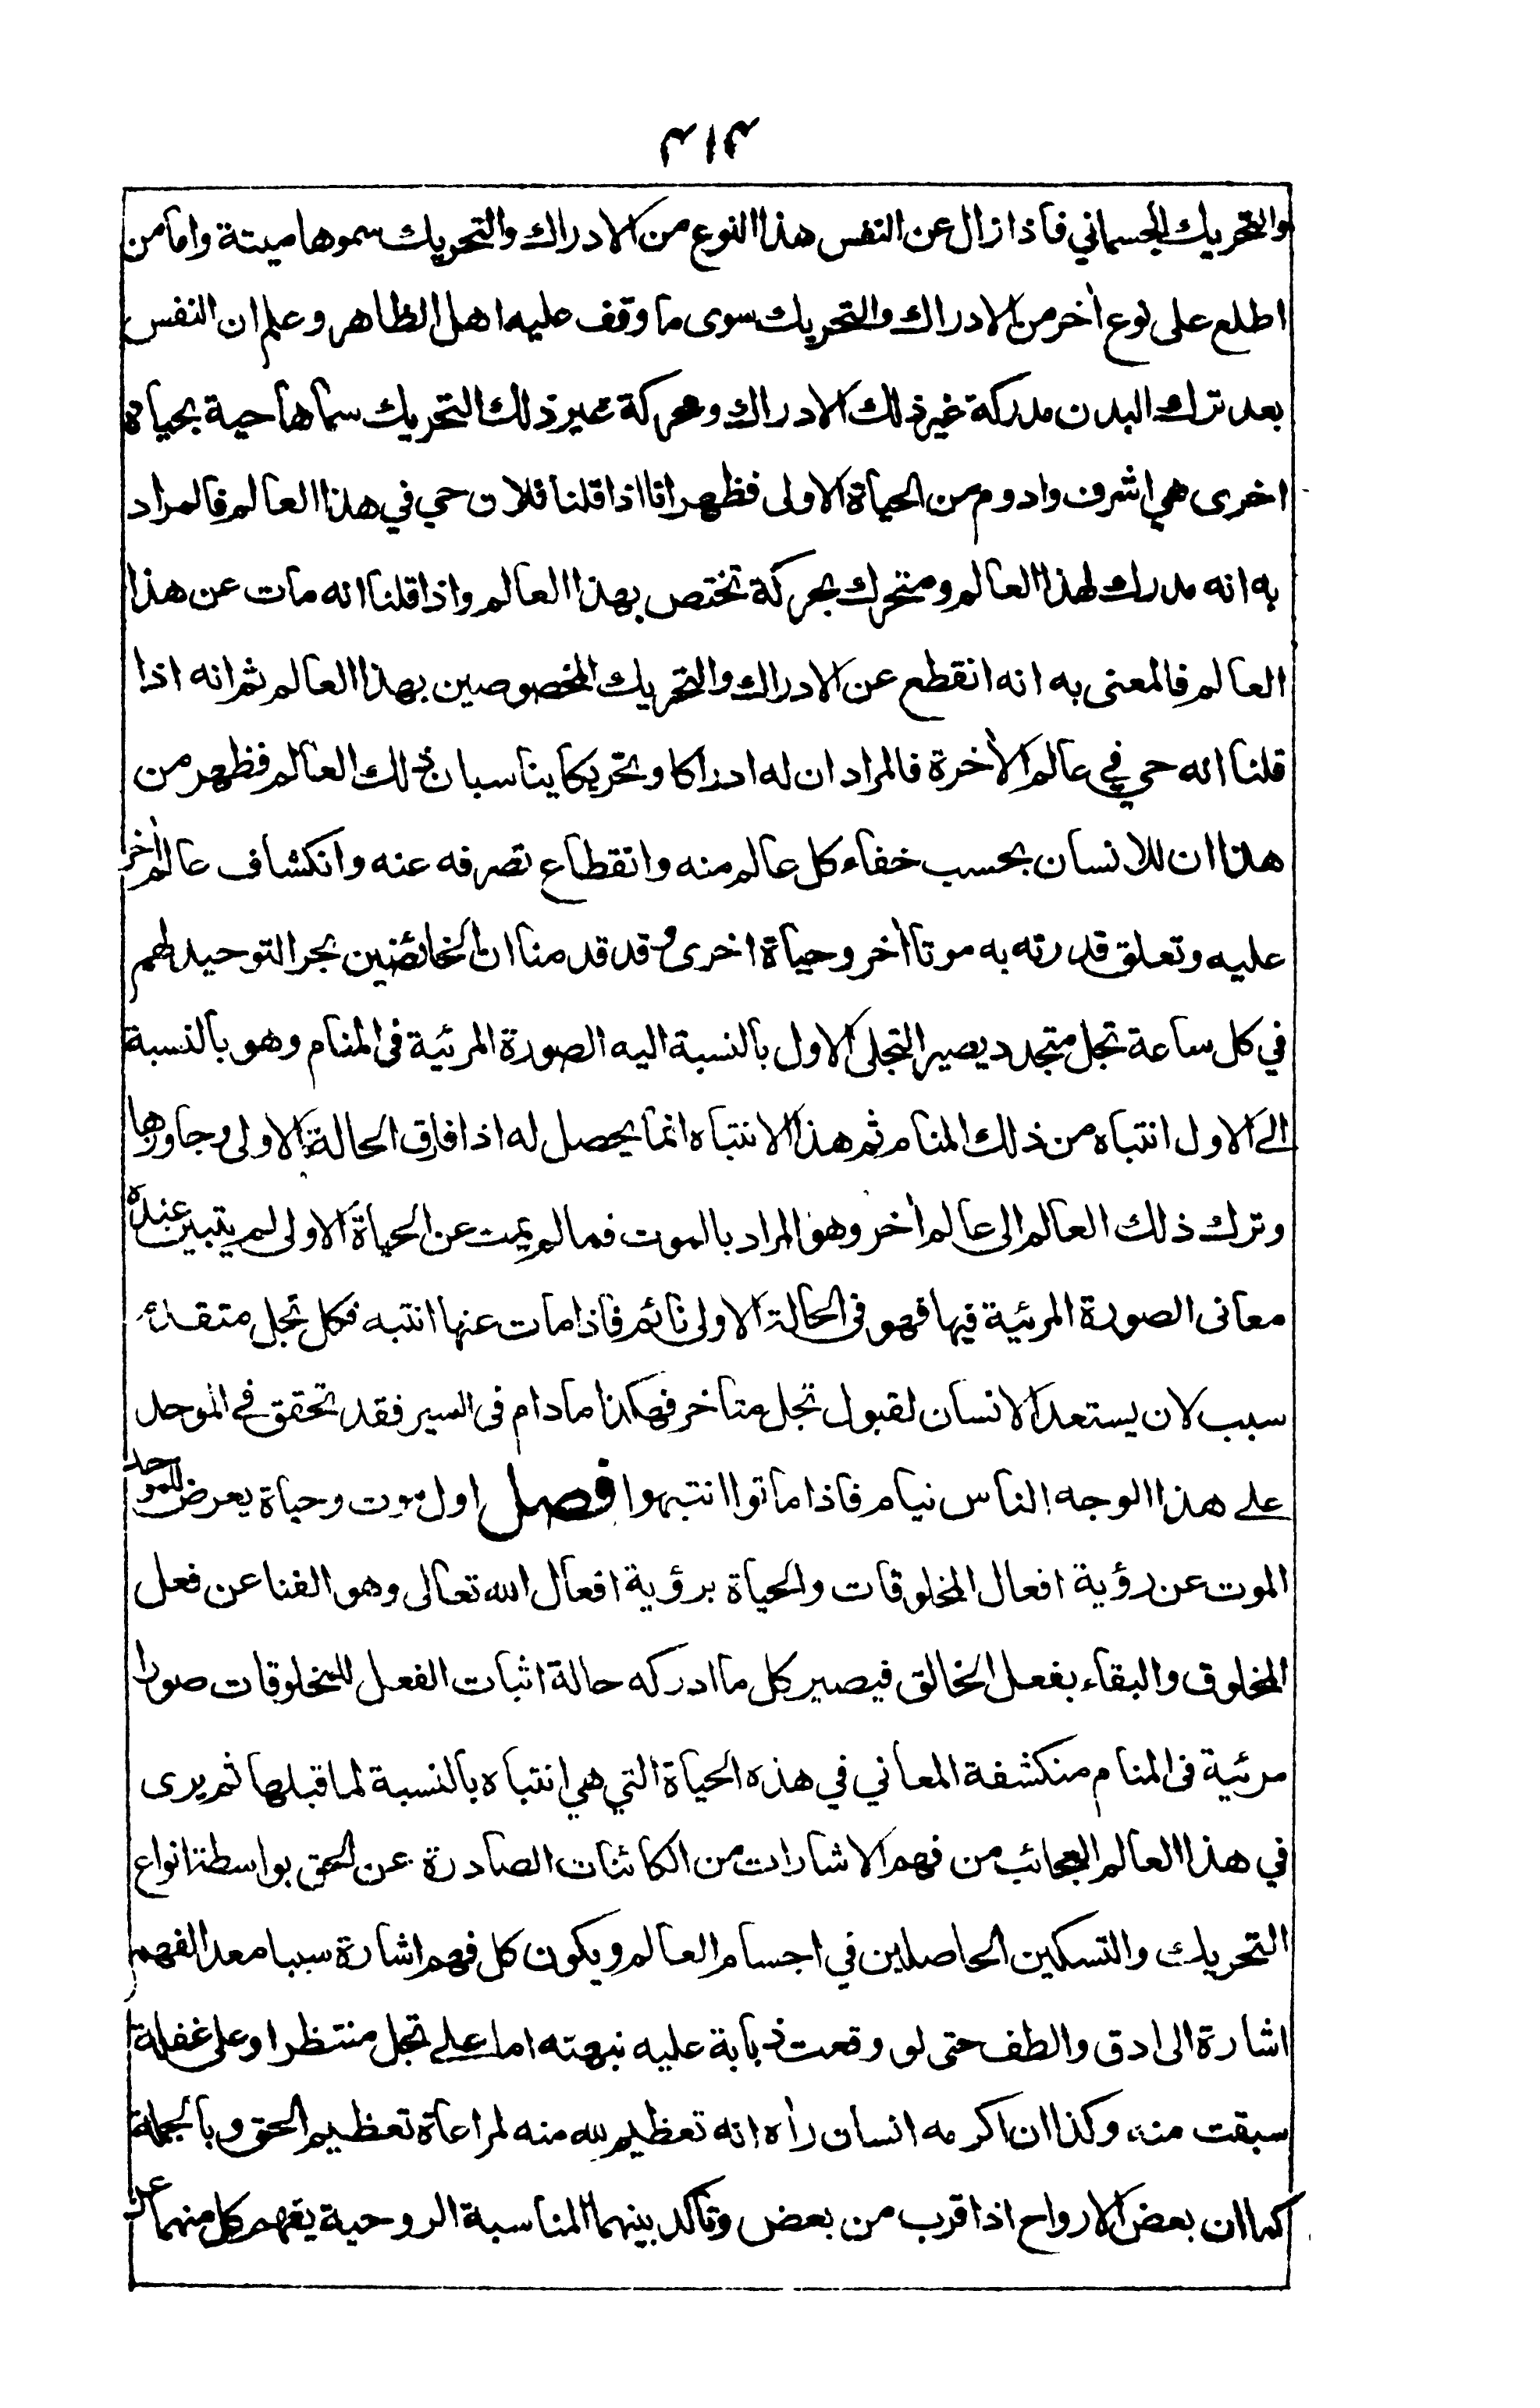 والتحريك الجسماني فاذا زال عن النفس هذا النوع من الادراك والتحريك سموها ميتة واما من
اطلع على نوع أخر من الادراك والتحريك سوى ما وقف عليه اهل الظاهر وعلم ان النفس
بعد ترك البدن مدركة غير ذلك الادراك ومحركة غير ذلك التحريك سماها حية بحياة
اخرى هي اشرف وادوم من الحياة الاولى فظهر انا اذا قلنا فلان حي في هذا العالم فالمراد
به انه مدرك لهذا العالم ومتحرك بحركة تختص بهذا العالم واذا قلنا انه مات عن هذا
العالم فالمعنى به انه انقطع عن الادراك والتحريك المخصوصين بهذا العالم ثم انه اذا
قلنا انه حي في عالم الأخرة فالمراد ان له ادراكا وتحريكا يناسبان ذلك العالم فظهر من
هذا ان للانسان بحسب خفاء كل عالم منه وانقطاع تصرفه عنه وانكشاف عالم أخر
عليه وتعلق قدرته به موتا أخر وحياة اخرى وقد قدمنا ان الخائضين بحر التوحيد لهم
في كل ساعة تجل متجدد يصير التجلى الاول بالنسبة اليه الصورة المرئية فى المنام وهو بالنسبة
الى الاول انتباه من ذلك المنام ثم هذا الانتباه انما يحصل له اذا فارق الحالة الاولى وجاوزها
وترك ذلك العالم الى عالم أخر وهو المراد بالموت فما لم يمت عن الحياة الاولى لم يتبين عنده
معانى الصورة المرئية فيها فهو فى الحالة الاولى نائم فاذا مات عنها انتبه فكل تجل متقدم
سبب لان يستعد الانسان لقبول تجل متأخر فهكذا مادام فى السير فقد تحقق في الموحد
على هذا الوجه الناس نيام فاذا ماتوا انتبهوا فصل اول موت وحياة يعرض للموحد
الموت عن رؤية افعال المخلوقات والحياة برؤية افعال الله تعالى وهو الفنا عن فعل
المخلوق والبقاء بفعل الخالق فيصير كل ما ادركه حالة اثبات الفعل للمخلوقات صورا
مرئية فى المنام منكشفة المعاني في هذه الحياة التي هي انتباه بالنسبة لما قبلها ثم يرى
في هذا العالم العجائب من فهم الاشارات من الكائنات الصادرة عن الحق بواسطة انواع
التحريك والتسكين الحاصلين في اجسام العالم ويكون كل فهم اشارة سببا معدا لفهم
اشارة الى ادق والطف حتى لو وقعت ذبابة عليه نبهته اما على تجل منتظر او على غفلة
سبقت منه وكذا ان اكرمه انسان رأه انه تعظيم لله منه لمراعاة تعظيم الحق وبالجملة
كما ان بعض الارواح اذا قرب من بعض وتأكد بينهما المناسبة الروحية يفهم كل منهما عن